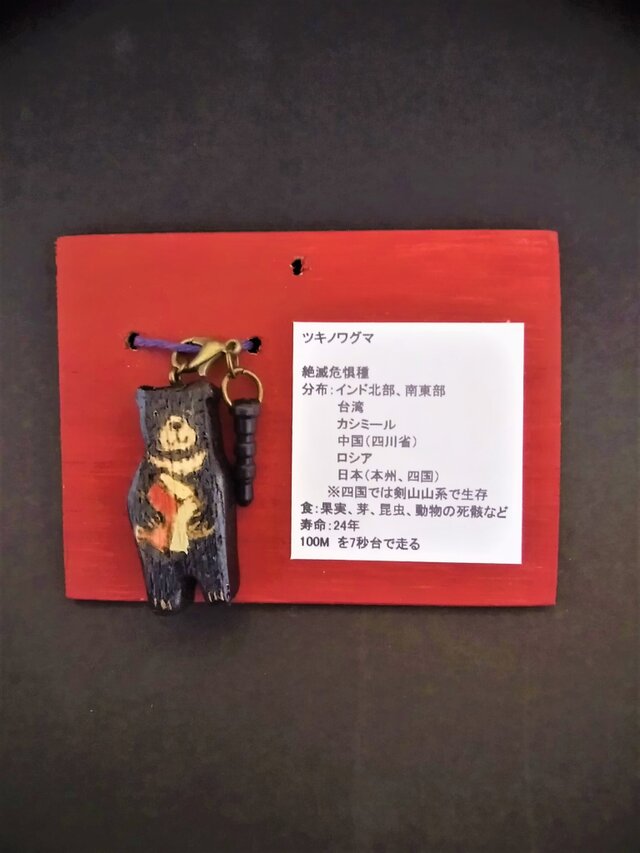 ツキノワグマ
絶滅危惧種
分布：インド北部、南東部
台湾
カシミール
中国（四川省）
ロシア
日本（本州、四国）
※四国では剣山山系で生存
食：果実、芽、昆虫、動物の死骸など
寿命：24年
100M を7秒台で走る